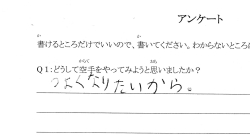 アンケート
書けるところだけでいいので、書いてください。わからないところは
Q1：どうして空手をやってみようと思いましたか？
つよくなりたいから。